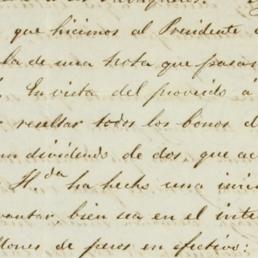 que hicimos al Presidente
la de una Nota que pasa
En vista del proveido á
resultar todos los bonos d
un dividendo de dos, que ac
H.da ha hecho una
vantar, bien sea en el inte
lones de pesos en efectivo: